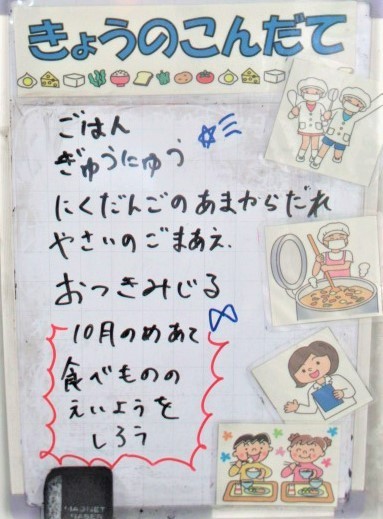 きょうのこんだて
ごはん
ぎゅうにゅう
にくだんごのあまからだれ
やさいのごまあえ.
おつきみじる
10月のめあて
食べものの
えいようを
しろう
MAGNET